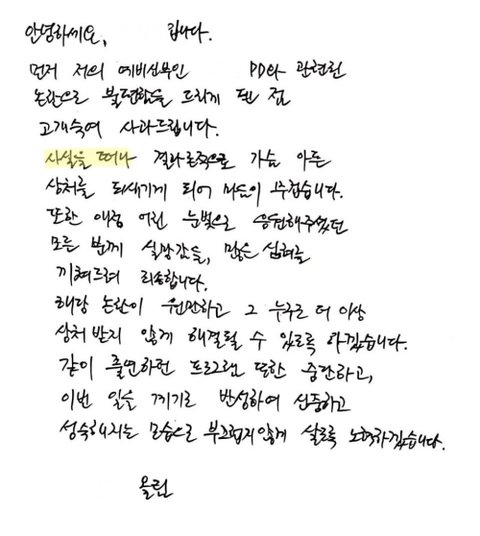 안녕하세요, 입니다.
먼저 저의 예비신부인 PD와 관련된
논란으로 불편함을 드리게 된 점
고개숙여 사과드립니다.
사실을 떠나 결과론적으로 가슴 아픈
상처를 되새기게 되어 마음이 무겁습니다.
또한 애정 어린 눈빛으로 응원해주셨던
모든 분께 실망감을, 많은 심려를
끼쳐드려 죄송합니다.
해당 논란이 원만하고 그 누구도 더 이상
상처 받지 않게 해결될 수 있도록 하겠습니다.
같이 출연하던 프로그램 또한 중단하고,
이번 일을 계기로 반성하며 신중하고
성숙해지는 모습으로 부끄럽지않게 살도록 노력하겠습니다.
올림